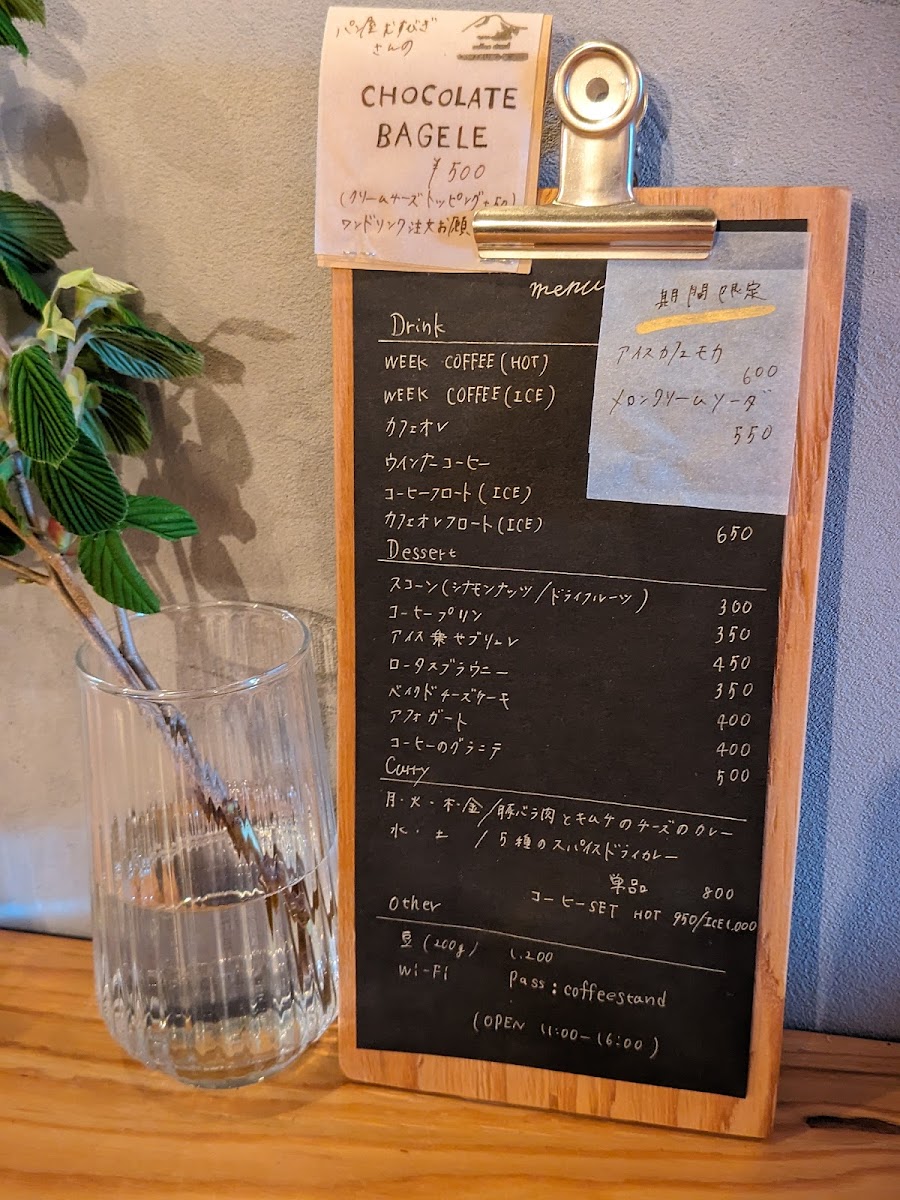 パン屋むすびぎ
さんの
CHOCOLATE
BAGELE
¥500
(クリームチーズトッピング+50)
ワンドリンク注文お願
menu
期間限定
アイスカフェモカ
600
メロンクリームソーダ
550
Drink
WEEK COFFEE (HOT)
WEEK COFFEE (ICE)
カフェオレ
ウインナーコーヒー
コーヒーフロート (ICE)
カフェオレフロート (ICE) 650
Dessert
スコーン (シナモンナッツ/ドライフルーツ) 300
コーヒープリン 350
アイス乗せブリュレ 450
ロータスブラウニー 350
ベイクドチーズケーキ 400
アフォガート 400
コーヒーのグラニテ 500
Curry
月・火・木・金/豚バラ肉とキムチのチーズのカレー
水・土 / 5種のスパイスドライカレー
単品 800
コーヒーSET HOT 950/ICE 1,000
Other
豆 (200g) 1,200
Wi-Fi Pass: coffeestand
(OPEN 11:00-16:00)